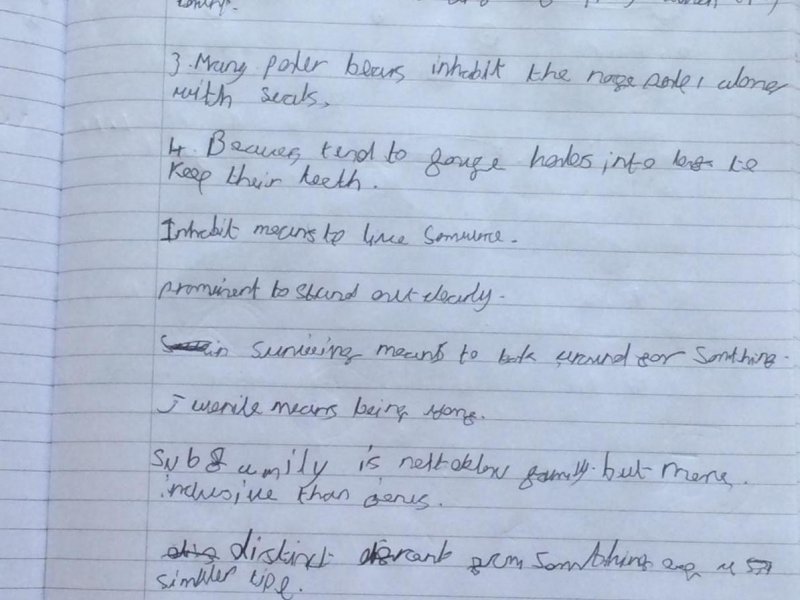 3. Many poler bears inhabit the , alone
with seals,
4. Beavers tend to gouge holes into to
Keep their teeth.
Inhabit means to live somwere.
prominent to stand out clearly.
means to look around for somthing.
Juvenile means being yong.
Subfamily is next below family but more
inclusive than genus.
distinct from somthing
simler tipe.